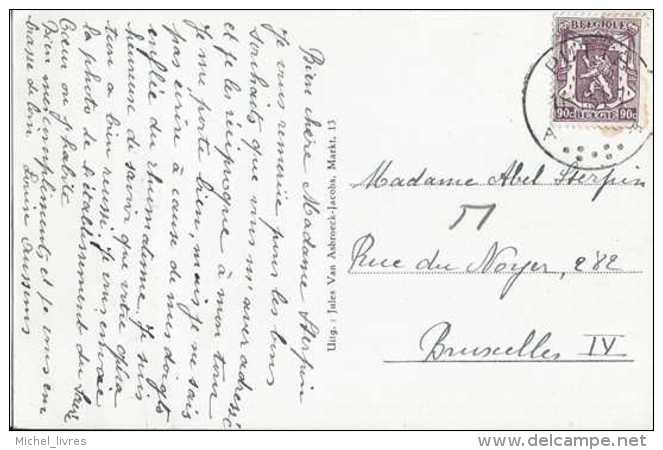 Bien chère Madame Sterpin
Je vous remercie pour les bons
souhaits que vous m'avez adressé
et je les réciproque à mon tour
Je me porte bien, mais je ne sais
pas écrire à cause de mes doigts
enflée du rhumatisme. Je suis
heureuse de savoir que votre opéra
tion a bien reussi. Je vous envoie
la photo de l'établissement du Sacré
Cœur ou j'habite
Bien mes compliments et je vous em
brasse de loin.
Uitg.: Jules Van Asbroeck-Jacobs, Markt, 13
BELGIQUE
90c BELGIE 90c
Madame Abel Sterpin
51
Rue du Noyer, 282
Bruxelles IV
Michel_livres
www.delcampe.net